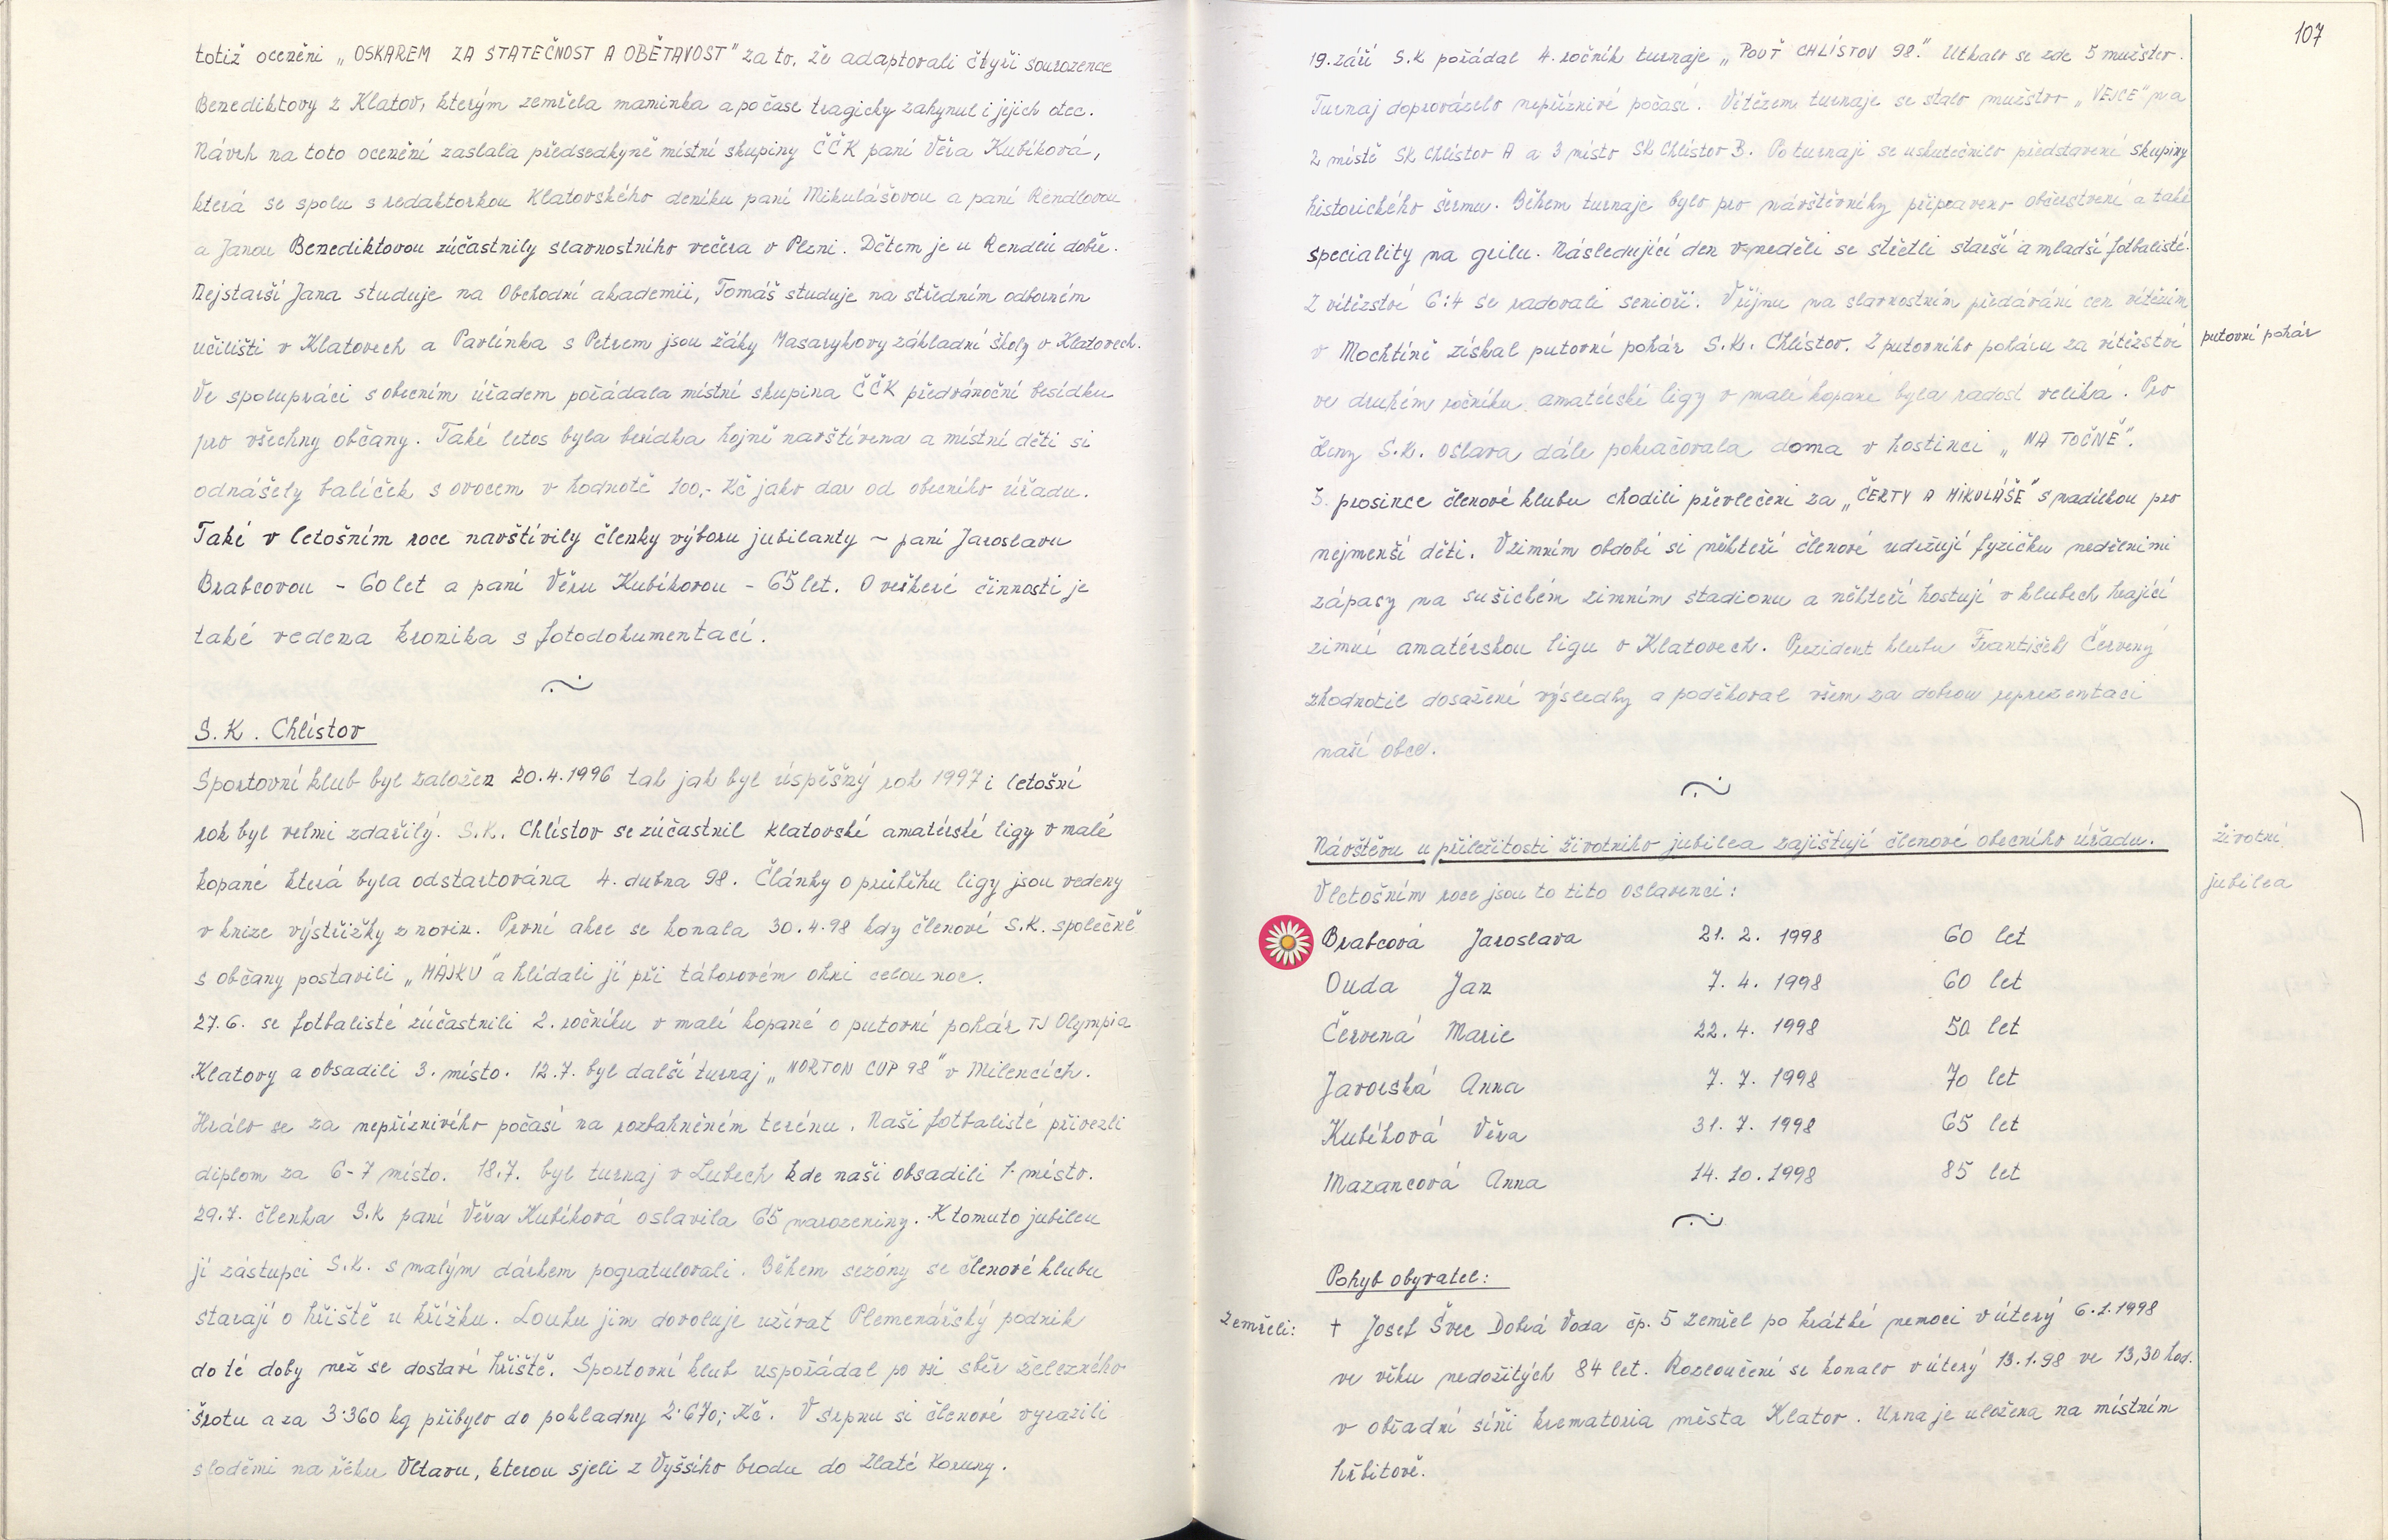 totiž oceněni „OSKAREM ZA STATEČNOST A OBĚTAVOST" za to, že adaptovali čtyři sourozence
Benediktovy z Klatov, kterým zemřela maminka a po čase tragicky zahynul i jejich otec.
Návrh na toto ocenění zaslala předsedkyně místní skupiny ČČK paní Věra Kubíková,
která se spolu s redaktorkou Klatovského deníku paní Mikulášovou a paní Rendlovou
a Janou Benediktovou zúčastnily slavnostního večera v Plzni. Dětem je u Rendlů dobře.
Nejstarší Jana studuje na Obchodní akademii, Tomáš studuje na středním odborném
učilišti v Klatovech a Pavlínka s Petrem jsou žáky Masarykovy základní školy v Klatovech.
Ve spolupráci s obecním úřadem pořádala místní skupina ČČK předvánoční besídku
pro všechny občany. Také letos byla besídka hojně navštívena a místní děti si
odnášely balíček s ovocem v hodnotě 100,- Kč jako dar od obecního úřadu.
Také v letošním roce navštívily členky výboru jubilanty ~ paní Jaroslavu
Brabcovou - 60 let a paní Věru Kubíkovou - 65 let. O veškeré činnosti je
také vedena kronika s fotodokumentací.
S.K. Chlístov
Sportovní klub byl založen 20.4.1996 tak jak byl úspěšný rok 1997 i letošní
rok byl velmi zdařilý. S.K. Chlístov se zúčastnil klatovské amatérské ligy v malé
kopané která byla odstartována 4. dubna 98. Články o průběhu ligy jsou vedeny
v knize výstřižky z novin. První akce se konala 30.4.98 kdy členové S.K. společně
s občany postavili „MÁJKU" a hlídali jí při táborovém ohni celou noc.
27.6. se fotbalisté zúčastnili 2. ročníku v malé kopané o putovní pohár TJ Olympia
Klatovy a obsadili 3. místo. 12.7. byl další turnaj „NORTON CUP 98" v Milencích.
Hrálo se za nepříznivého počasí na rozbahněném terénu. Naši fotbalisté přivezli
diplom za 6-7 místo. 18.7. byl turnaj v Lubech kde naši obsadili 1. místo.
29.7. členka S.K paní Věra Kubíková oslavila 65 narozeniny. K tomuto jubileu
jí zástupci S.K. s malým dárkem pogratulovali. Během sezóny se členové klubu
starají o hřiště u křížku. Louku jim dovoluje užívat Plemenářský podnik
do té doby než se dostaví hřiště. Sportovní klub uspořádal po vsi sběr železného
šrotu a za 3.360 kg přibylo do pokladny 2.670,- Kč. V srpnu si členové vyrazili
s loděmi na řeku Vltavu, kterou sjeli z Vyššího brodu do Zlaté Koruny.
107
19. září S.K pořádal 4. ročník turnaje „POUŤ CHLÍSTOV 98." Utkalo se zde 5 mužstev.
Turnaj doprovázelo nepříznivé počasí. Vítězem turnaje se stalo mužstvo „VEJCE" na
2 místě SK Chlístov A a 3 místo SK Chlístov B. Po turnaji se uskutečnilo představení skupiny
historického šermu. Během turnaje bylo pro návštěvníky připraveno občerstvení a také
speciality na grilu. Následující den v neděli se střetli starší a mladší fotbalisté.
Z vítězství 6:4 se radovali senioři. V říjnu na slavnostním předávání cen vítězům
v Mochtíně získal putovní pohár S.K. Chlístov. Z putovního poháru za vítězství
putovní pohár
ve druhém ročníku amatérské ligy v malé kopané byla radost veliká. Pro
členy S.K. oslava dále pokračovala doma v hostinci „NA TOČNĚ".
5. prosince členové klubu chodili převlečeni za „ČERTY A MIKULÁŠE" s nadílkou pro
nejmenší děti. V zimním období si někteří členové udržují fyzičku nedělními
zápasy na sušickém zimním stadionu a někteří hostují v klubech hrající
zimní amatérskou ligu v Klatovech. Prezident klubu František Červený
zhodnotil dosažené výsledky a poděkoval všem za dobrou reprezentaci
naší obce.
Návštěvu u příležitosti životního jubilea zajišťují členové obecního úřadu.
životní
jubilea
V letošním roce jsou to tito oslavenci:
Brabcová Jaroslava 21. 2. 1998 60 let
Duda Jan 7. 4. 1998 60 let
Červená Marie 22. 4. 1998 50 let
Javorská Anna 7. 7. 1998 70 let
Kubíková Věra 31. 7. 1998 65 let
Mazancová Anna 14. 10. 1998 85 let
Pohyb obyvatel:
Zemřeli: † Josef Švec Dobrá Voda čp. 5 zemřel po krátké nemoci v úterý 6.1.1998
ve věku nedožitých 84 let. Rozloučení se konalo v úterý 13.1.98 ve 13,30 hod.
v obřadní síňi krematoria města Klatov. Urna je uložena na místním
hřbitově.